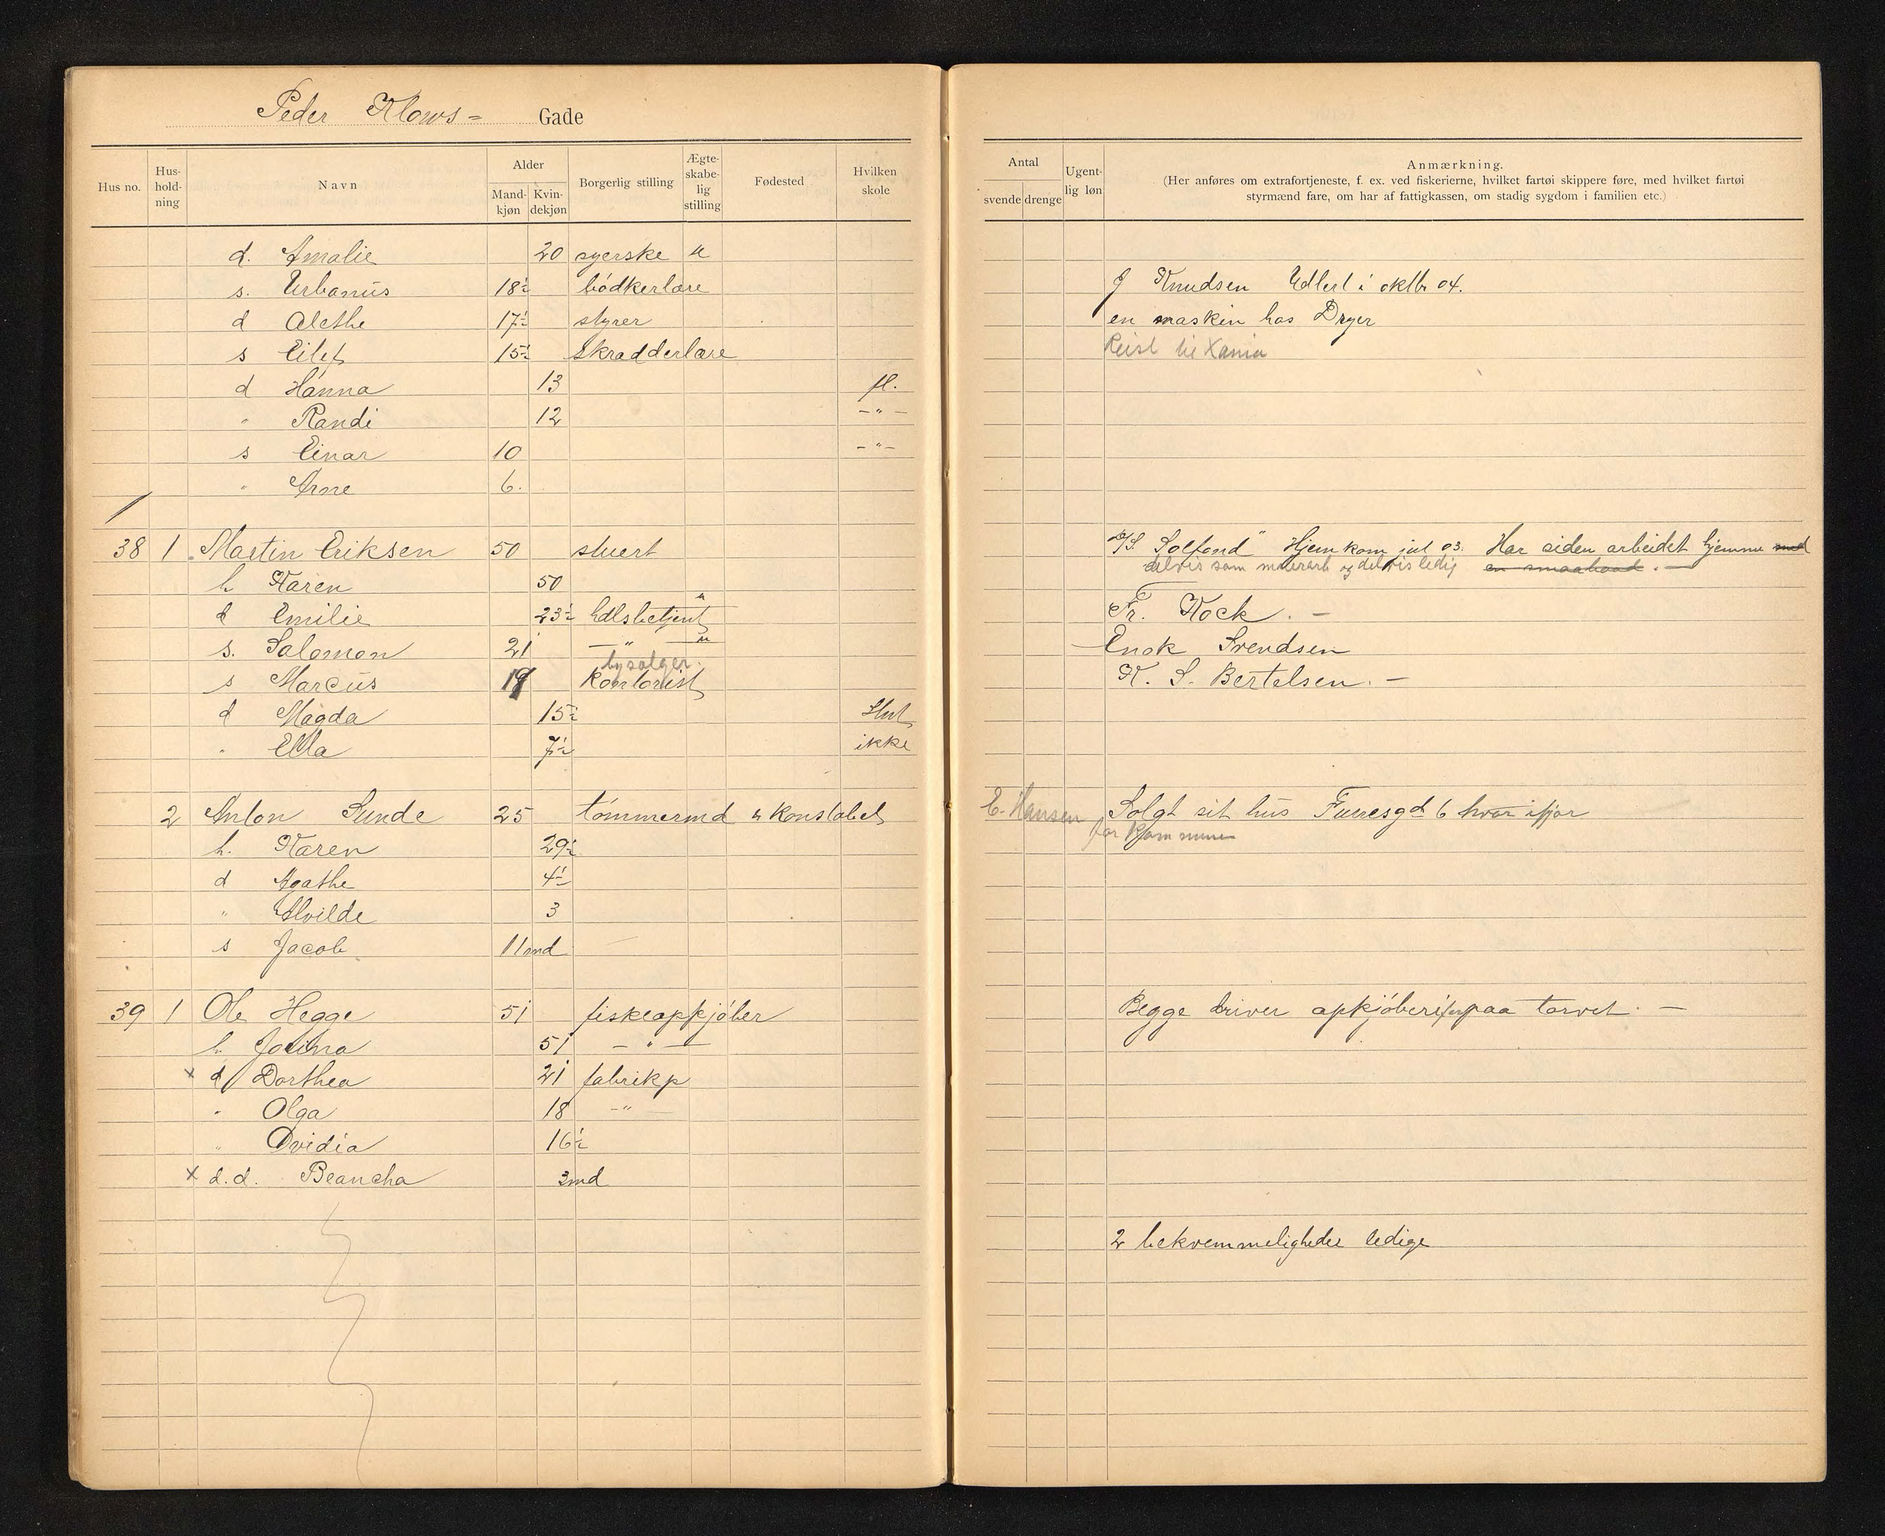 Peder Klows- Gade
Hus no. Hus-hold-ning Navn Alder Mand-kjøn Kvin-dekjøn Borgerlig stilling Ægte-skabe-lig stilling Fødested Hvilken skole
d. Amalie 20 syerske u
s. Urbanus 18½ bødkerlære
d Alethe 17½ styrer
s Eilef 15½ skrædderlære
d Hanna 13 fl.
" Randi 12 -"-
s Einar 10 -"-
" Arne 6.
38 1 Martin Eriksen 50 stuert
h Karen 50
d Emilie 23½ hdlsbetjent u
s. Salomon 21 -"- u
bysælger.
s Marcus 19 kontorist
d Magda 15½ slut
" Ella 7½ ikke
2 Anton Sunde 25 tømmermd & konstabel
h. Karen 29½
d Agathe 4½
" Alvilde 3
s Jacob 11 md
39 1 Ole Hegge 51 fiskeopkjøber
h. Josina 51 -"-
x d Dorthea 21 fabrikp
" Olga 18 -"-
" Ovidia 16½
x d.d. Beancha 3md
Antal svende drenge Ugent-lig løn Anmærkning.
(Her anføres om extrafortjeneste, f. ex. ved fiskerierne, hvilket fartøi skippere føre, med hvilket fartøi
styrmænd fare, om har af fattigkassen, om stadig sygdom i familien etc.)
J Knudsen Udlert i oktbr 04.
en maskin hos Dryer
Reist til Xania
D/S. Solfond" Hjemkom jul 03. Har siden arbeidet hjemme med
delvis som malerarb og delvis ledig en smaabaad. -
Fr. Kock. -
Enok Svendsen
K. S. Bertelsen. -
E. Hansen Solgt sit hus Funesgd 6 hvor ifjor
for kommunen
Begge driver opkjøberi paa torvet. -
2 bekvemmeligheder ledige